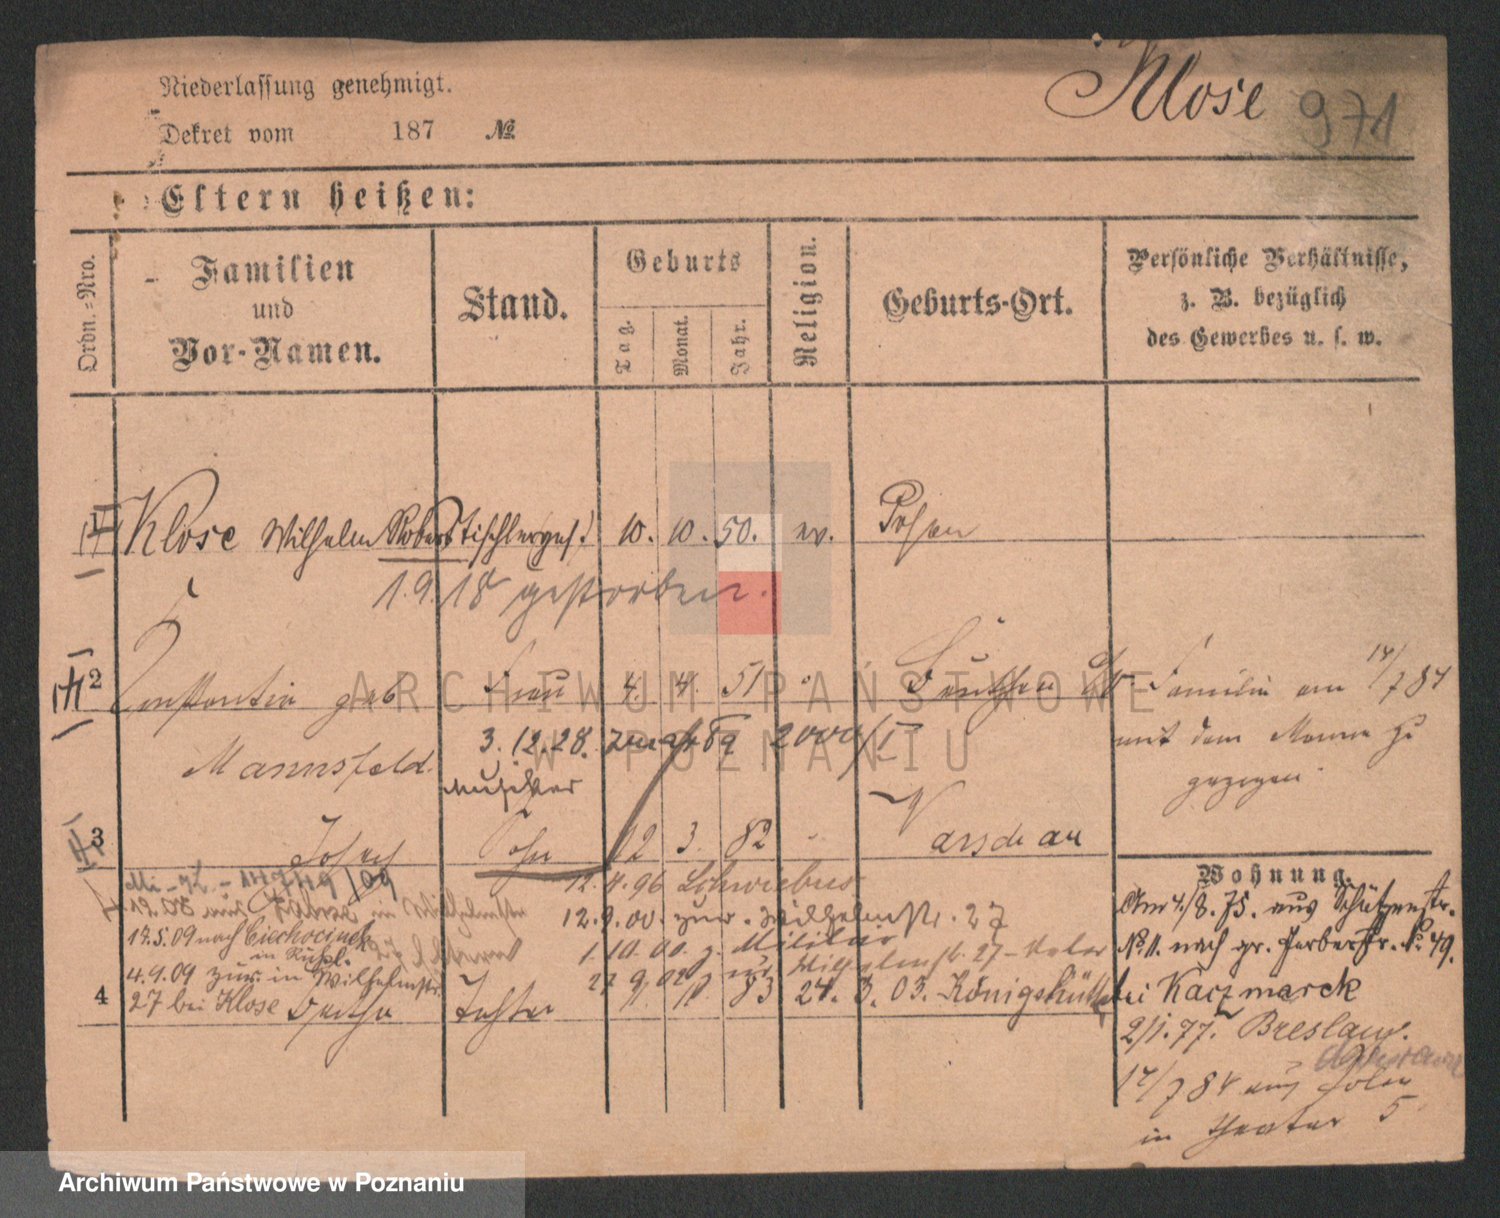 Niederlassung genehmigt.
Klose 971
Dekret vom 187 №
Eltern heißen:
Ordn.=Nro.
Familien
und
Vor-Namen.
Stand.
Geburts
Tag.
Monat.
Jahr.
Religion.
Geburts-Ort.
Persönliche Verhältnisse,
z. B. bezüglich
des Gewerbes u. s. w.
1 Klose Wilhelm Robert Tischlerges. 10. 10. 50. ev. Posen
1.9.18 gestorben.
2 Constantia geb Frau 4. 4. 51 Familie am 14/7 84
Mannsfeld. 3.12.28. mit dem Manne zu
Musiker gezogen
3 Josef Sohn 12 3. 82 Warschau
Wohnung.
12.4.96 Schwiebus
Am 4./8. 75. aus Schützenstr.
12.9.00. zur. Wilhelmstr. 27
17.5.09 nach Ciechocinek
in Rußl.
1.10.00. z. Militär
No. 1. nach gr. Gerberstr. No. 49.
4.9.09 zur. in Wilhelmstr.
27 bei Klose
Wilhelmstr. 27
4 Bertha Tochter 9. 83 24. 3. 03. Königshütte
bei Kaczmarek
2/1. 77. Breslau.
14/7 84 aus Polen
in Theater 5
ARCHIWUM PAŃSTWOWE
W POZNANIU
Archiwum Państwowe w Poznaniu